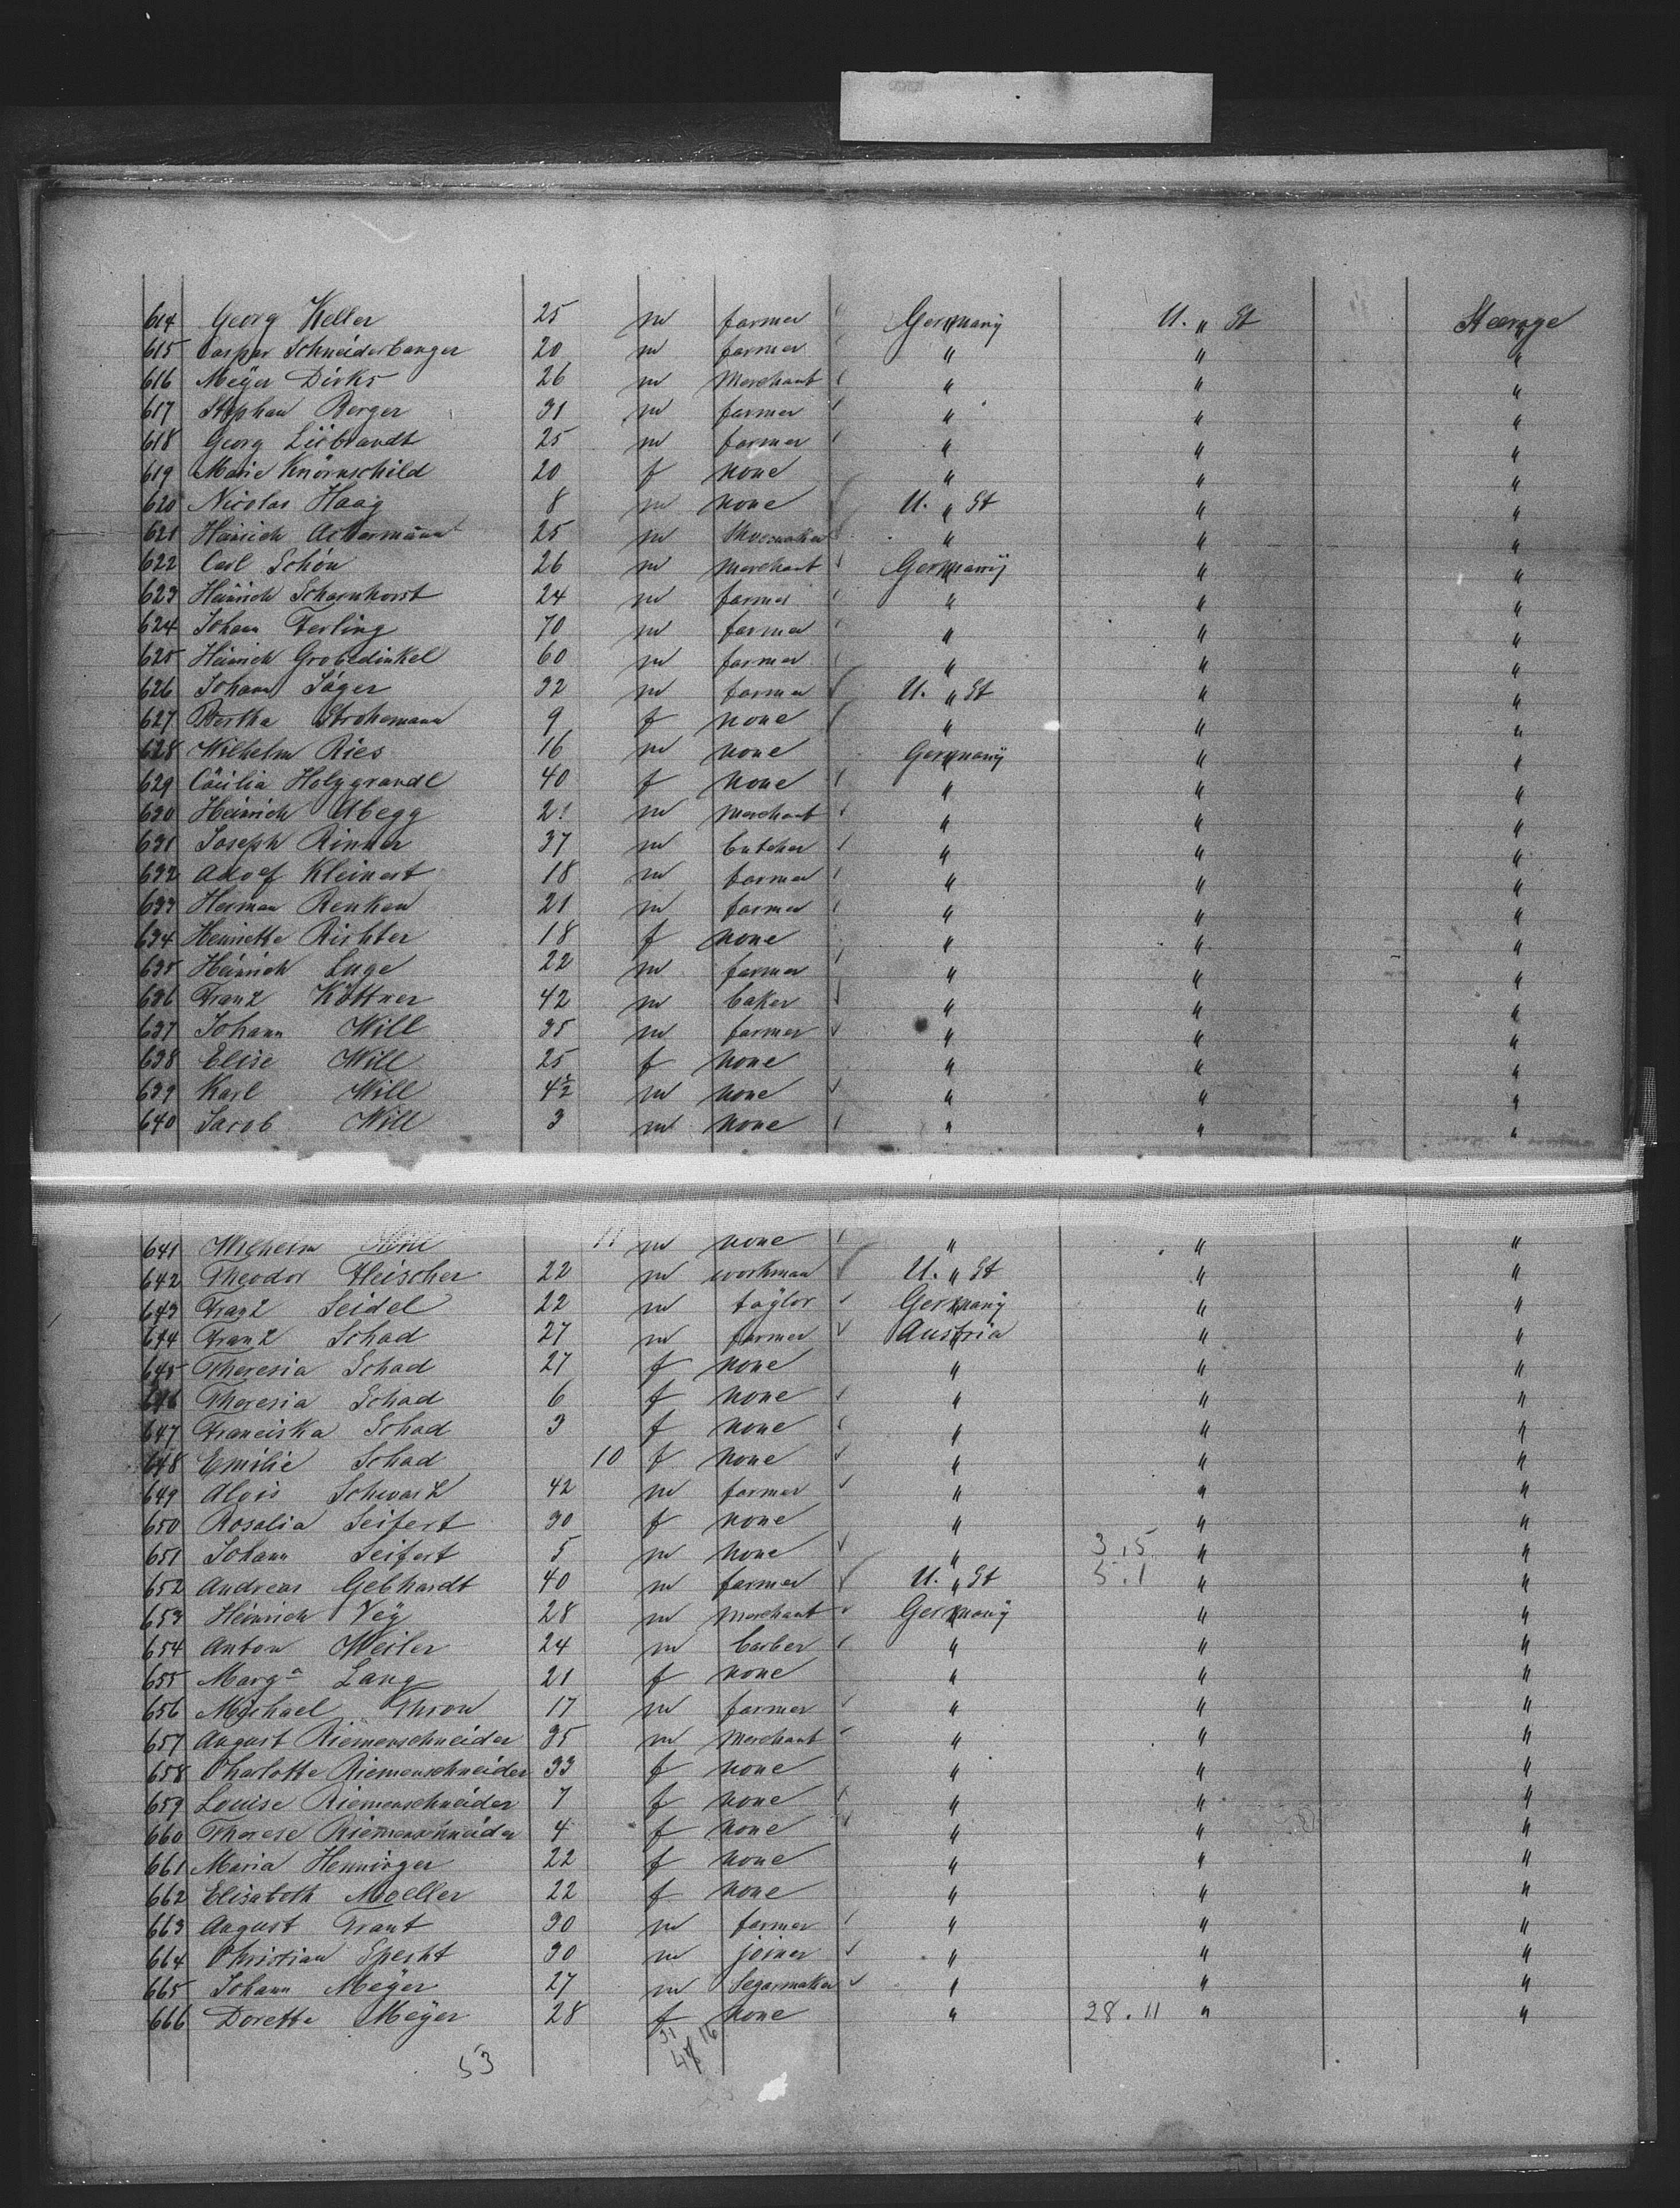 614 Georg Keller 25 m farmer Germany U. " St Steerage
615 Caspar Schneiderbanger 20 m farmer " " "
616 Meÿer Dirks 26 m merchant " " "
617 Stephan Berger 31 m farmer " " "
618 Georg Liebrandt 25 m farmer " " "
619 Marie Knörnschild 20 f none " " "
620 Nicolas Haag 8 m none U. " St " "
621 Heinrich Ackermann 25 m Shoemaker " " "
622 Carl Schön 26 m merchant Germany " "
623 Heinrich Scharnhorst 24 m farmer " " "
624 Johann Ferling 70 m farmer " " "
625 Heinrich Grobedinkel 60 m farmer " " "
626 Johann Jäger 32 m farmer U. " St " "
627 Bertha Strohemann 9 f none " " "
628 Wilhelm Ries 16 m none Germany " "
629 Cäcilia Holzgrandl 40 f none " " "
630 Heinrich Abegg 21 m merchant " " "
631 Joseph Rinner 37 m butcher " " "
632 Adolf Kleinert 18 m farmer " " "
633 Herman Renken 21 m farmer " " "
634 Henriette Richter 18 f none " " "
635 Heinrich Luge 22 m farmer " " "
636 Franz Köttner 42 m baker " " "
637 Johann Will 35 m farmer " " "
638 Elise Will 25 f none " " "
639 Karl Will 4½ m none " " "
640 Jacob Will 3 m none " " "
641 Wilhelm Will 11 m none " " "
642 Theodor Fleischer 22 m workman U. " St " "
643 Franz Seidel 22 m taylor Germany " "
644 Franz Schad 27 m farmer Austria " "
645 Theresia Schad 27 f none " " "
646 Theresia Schad 6 f none " " "
647 Franciska Schad 3 f none " " "
648 Emilie Schad 10 f none " " "
649 Alois Schwarz 42 m farmer " " "
650 Rosalia Seifert 30 f none " " "
651 Johann Seifert 5 m none " 3.5 " "
652 Andreas Gebhardt 40 m farmer U. " St 5.1 " "
653 Heinrich Veÿ 28 m merchant Germany " "
654 Anton Weiler 24 m barber " " "
655 Marga Lang 21 f none " " "
656 Michael Thron 17 m farmer " " "
657 August Riemenschneider 35 m merchant " " "
658 Charlotte Riemenschneider 33 f none " " "
659 Louise Riemenschneider 7 f none " " "
660 Therese Riemenschneider 4 f none " " "
661 Maria Henninger 22 f none " " "
662 Elisabeth Moeller 22 f none " " "
663 August Trant 30 m farmer " " "
664 Christian Specht 30 m joiner " " "
665 Johann Meÿer 27 m Segarmaker " " "
666 Dorette Meÿer 28 f none " 28.11 " "
31 16
53 47